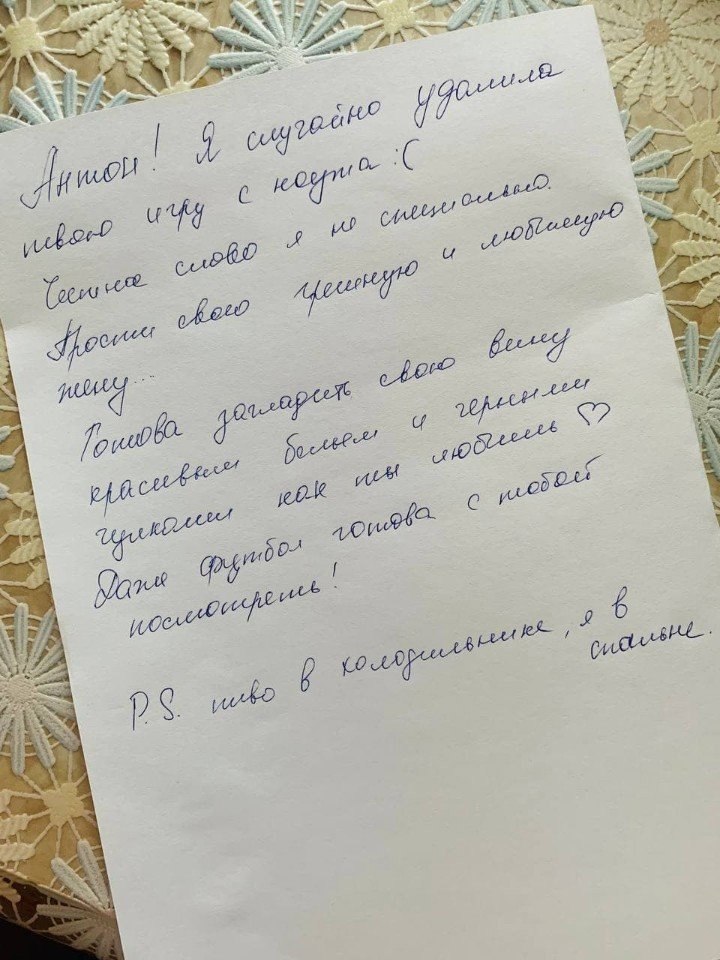 Антон! Я случайно удалила
твою игру с ноута :(
Честное слово я не специально.
Прости свою грешную и любимую
жену...
Готова загладить свою вину
красивым бельем и черными
чулками как ты любишь ♡
Даже футбол готова с тобой
посмотреть!
P.S. пиво в холодильнике, я в
спальне.